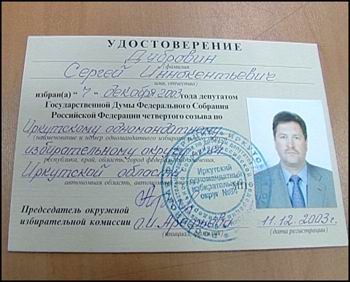 УДОСТОВЕРЕНИЕ
Дубровин
(фамилия
Сергей Иннокентьевич
имя, отчество)
избран(а) "7" декабря 2003 года депутатом
Государственной Думы Федерального Собрания
Российской Федерации четвертого созыва по
Иркутскому одномандатному
(наименование и номер одномандатного избирательного
избирательному округу
республика, край, область, город федерального значения,
Иркутской области
автономная область,
Председатель окружной
избирательной комиссии
Иркутский
одномандатный
избирательный
округ
11.12.2003 г.
(дата регистрации)